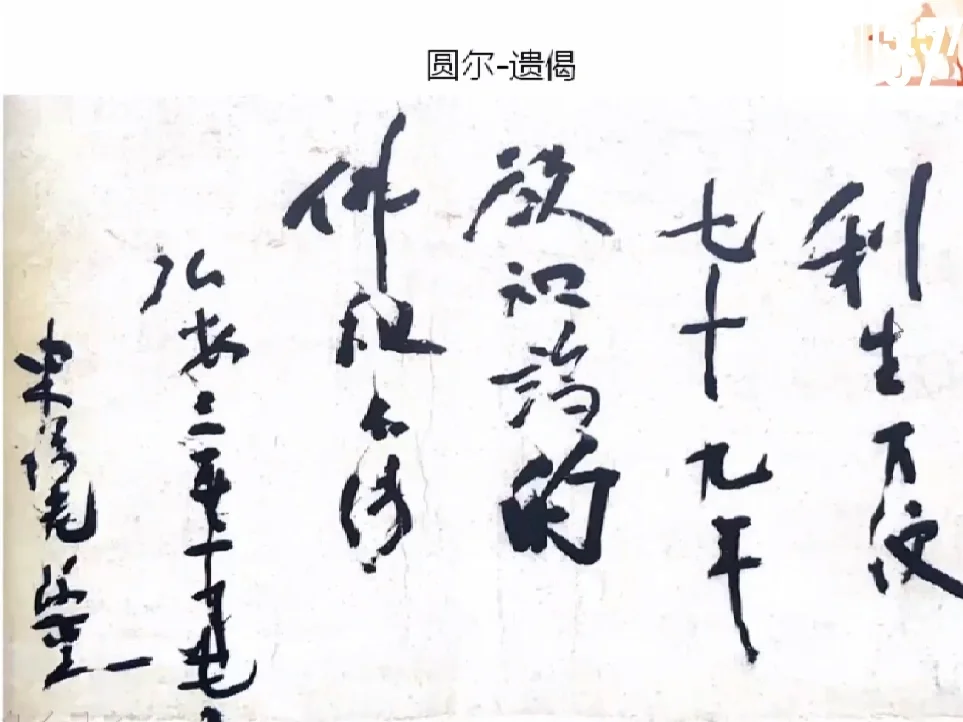 圆尔-遗偈
利生方便
七十九年
欲知端的
佛祖不传
弘安三年十月十七日
东福老衲